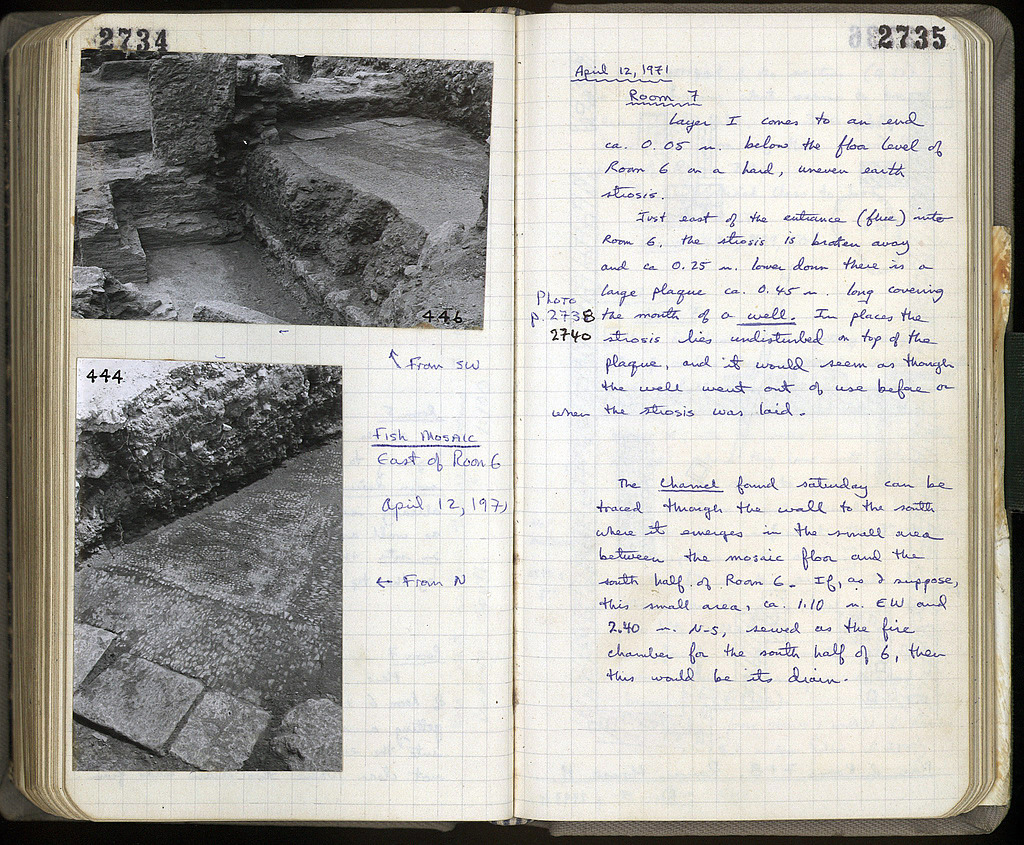 2734
446
↖ From SW
444
Fish Mosaic
East of Room 6
April 12, 1971
← From N
2735
April 12, 1971
Room 7
Layer I comes to an end
ca. 0.05 m. below the floor level of
Room 6 on a hard, uneven earth
strosis.
Just east of the entrance (flue) into
Room 6, the strosis is broken away
and ca 0.25 m. lower down there is a
large plaque ca. 0.45 m. long covering
Photo
p. 2738
2740
the mouth of a well. In places the
strosis lies undisturbed on top of the
plaque, and it would seem as though
the well went out of use before or
when the strosis was laid.
The channel found saturday can be
traced through the wall to the south
where it emerges in the small area
between the mosaic floor and the
south half of Room 6. If, as I suppose,
this small area, ca. 1.10 m. EW and
2.40 m. N-S, served as the fire
chamber for the south half of 6, then
this would be its drain.